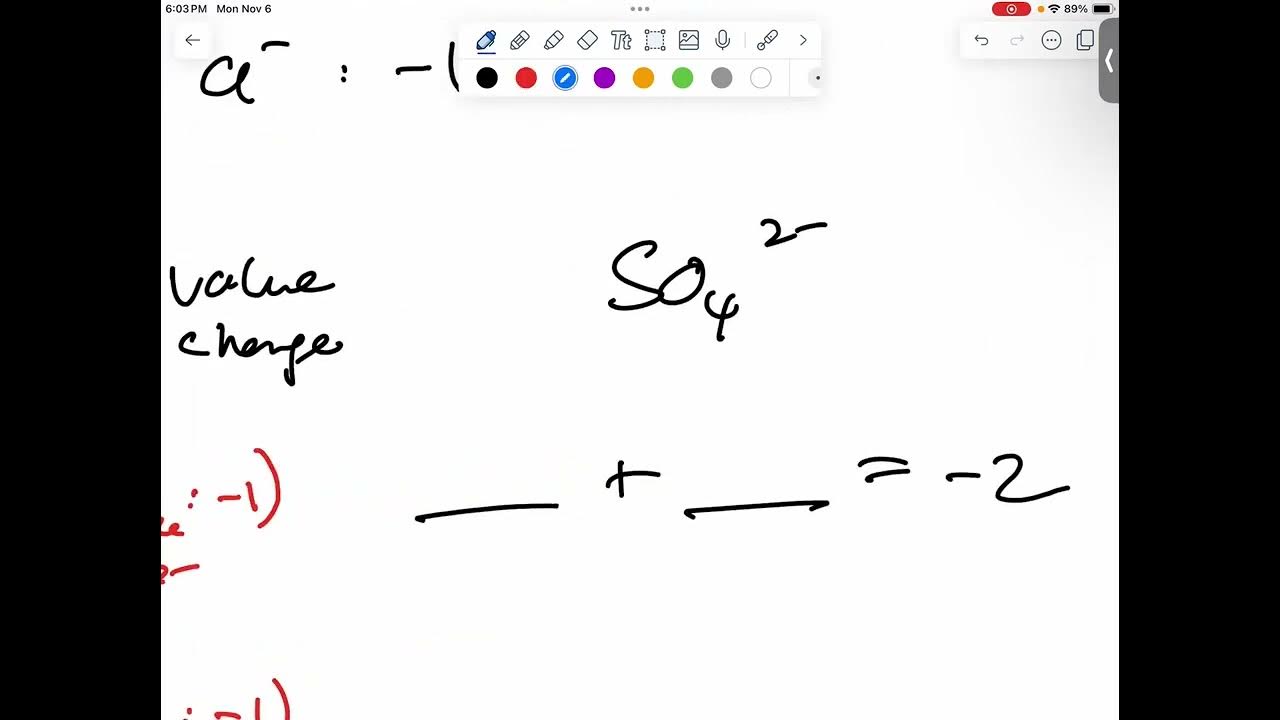 6:03 PM Mon Nov 6
89%
Tt
Cl⁻ : -1
value
change
SO₄²⁻
: -1)
e-
___ + ___ = -2
: -1)